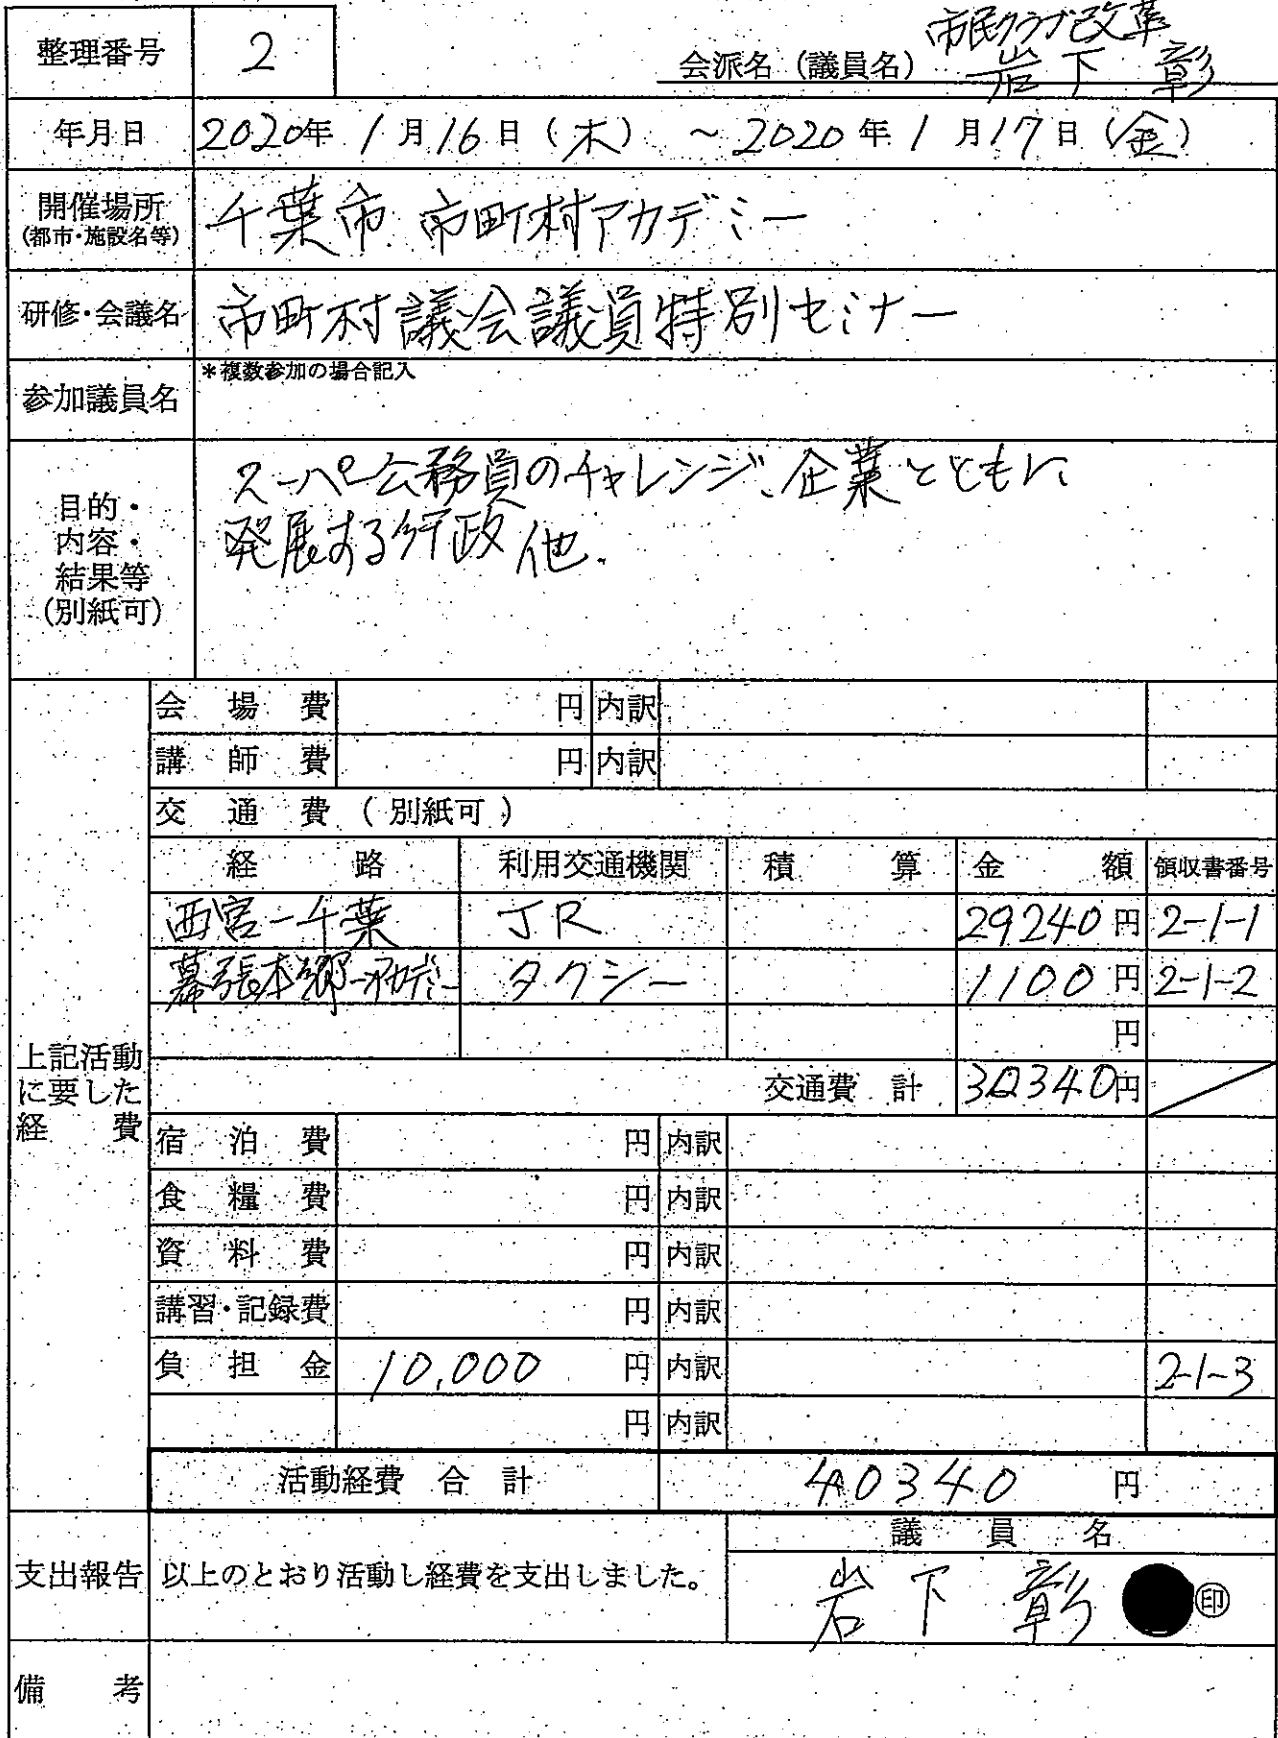 整理番号 2 会派名（議員名） 市民クラブ改革
岩下 彰
年月日 2020年 1月16日（木） ～ 2020年 1月17日（金）
開催場所
(都市・施設名等)
千葉市 市町村アカデミー
研修・会議名 市町村議会議員特別セミナー
参加議員名 *複数参加の場合記入
目的・
内容・
結果等
(別紙可)
スーパー公務員のチャレンジ、企業とともに
発展する行政 他.
上記活動
に要した
経費
会場費 円 内訳
講師費 円 内訳
交通費 ( 別紙可 )
経路 利用交通機関 積算 金額 領収書番号
西宮－千葉 JR 29240円 2-1-1
幕張本郷－アカデミー タクシー 1100円 2-1-2
円
交通費 計 30340円
宿泊費 円 内訳
食糧費 円 内訳
資料費 円 内訳
講習・記録費 円 内訳
負担金 10,000 円 内訳 2-1-3
円 内訳
活動経費 合 計 40340 円
支出報告 以上のとおり活動し経費を支出しました。
議員名
岩下 彰 印
備考